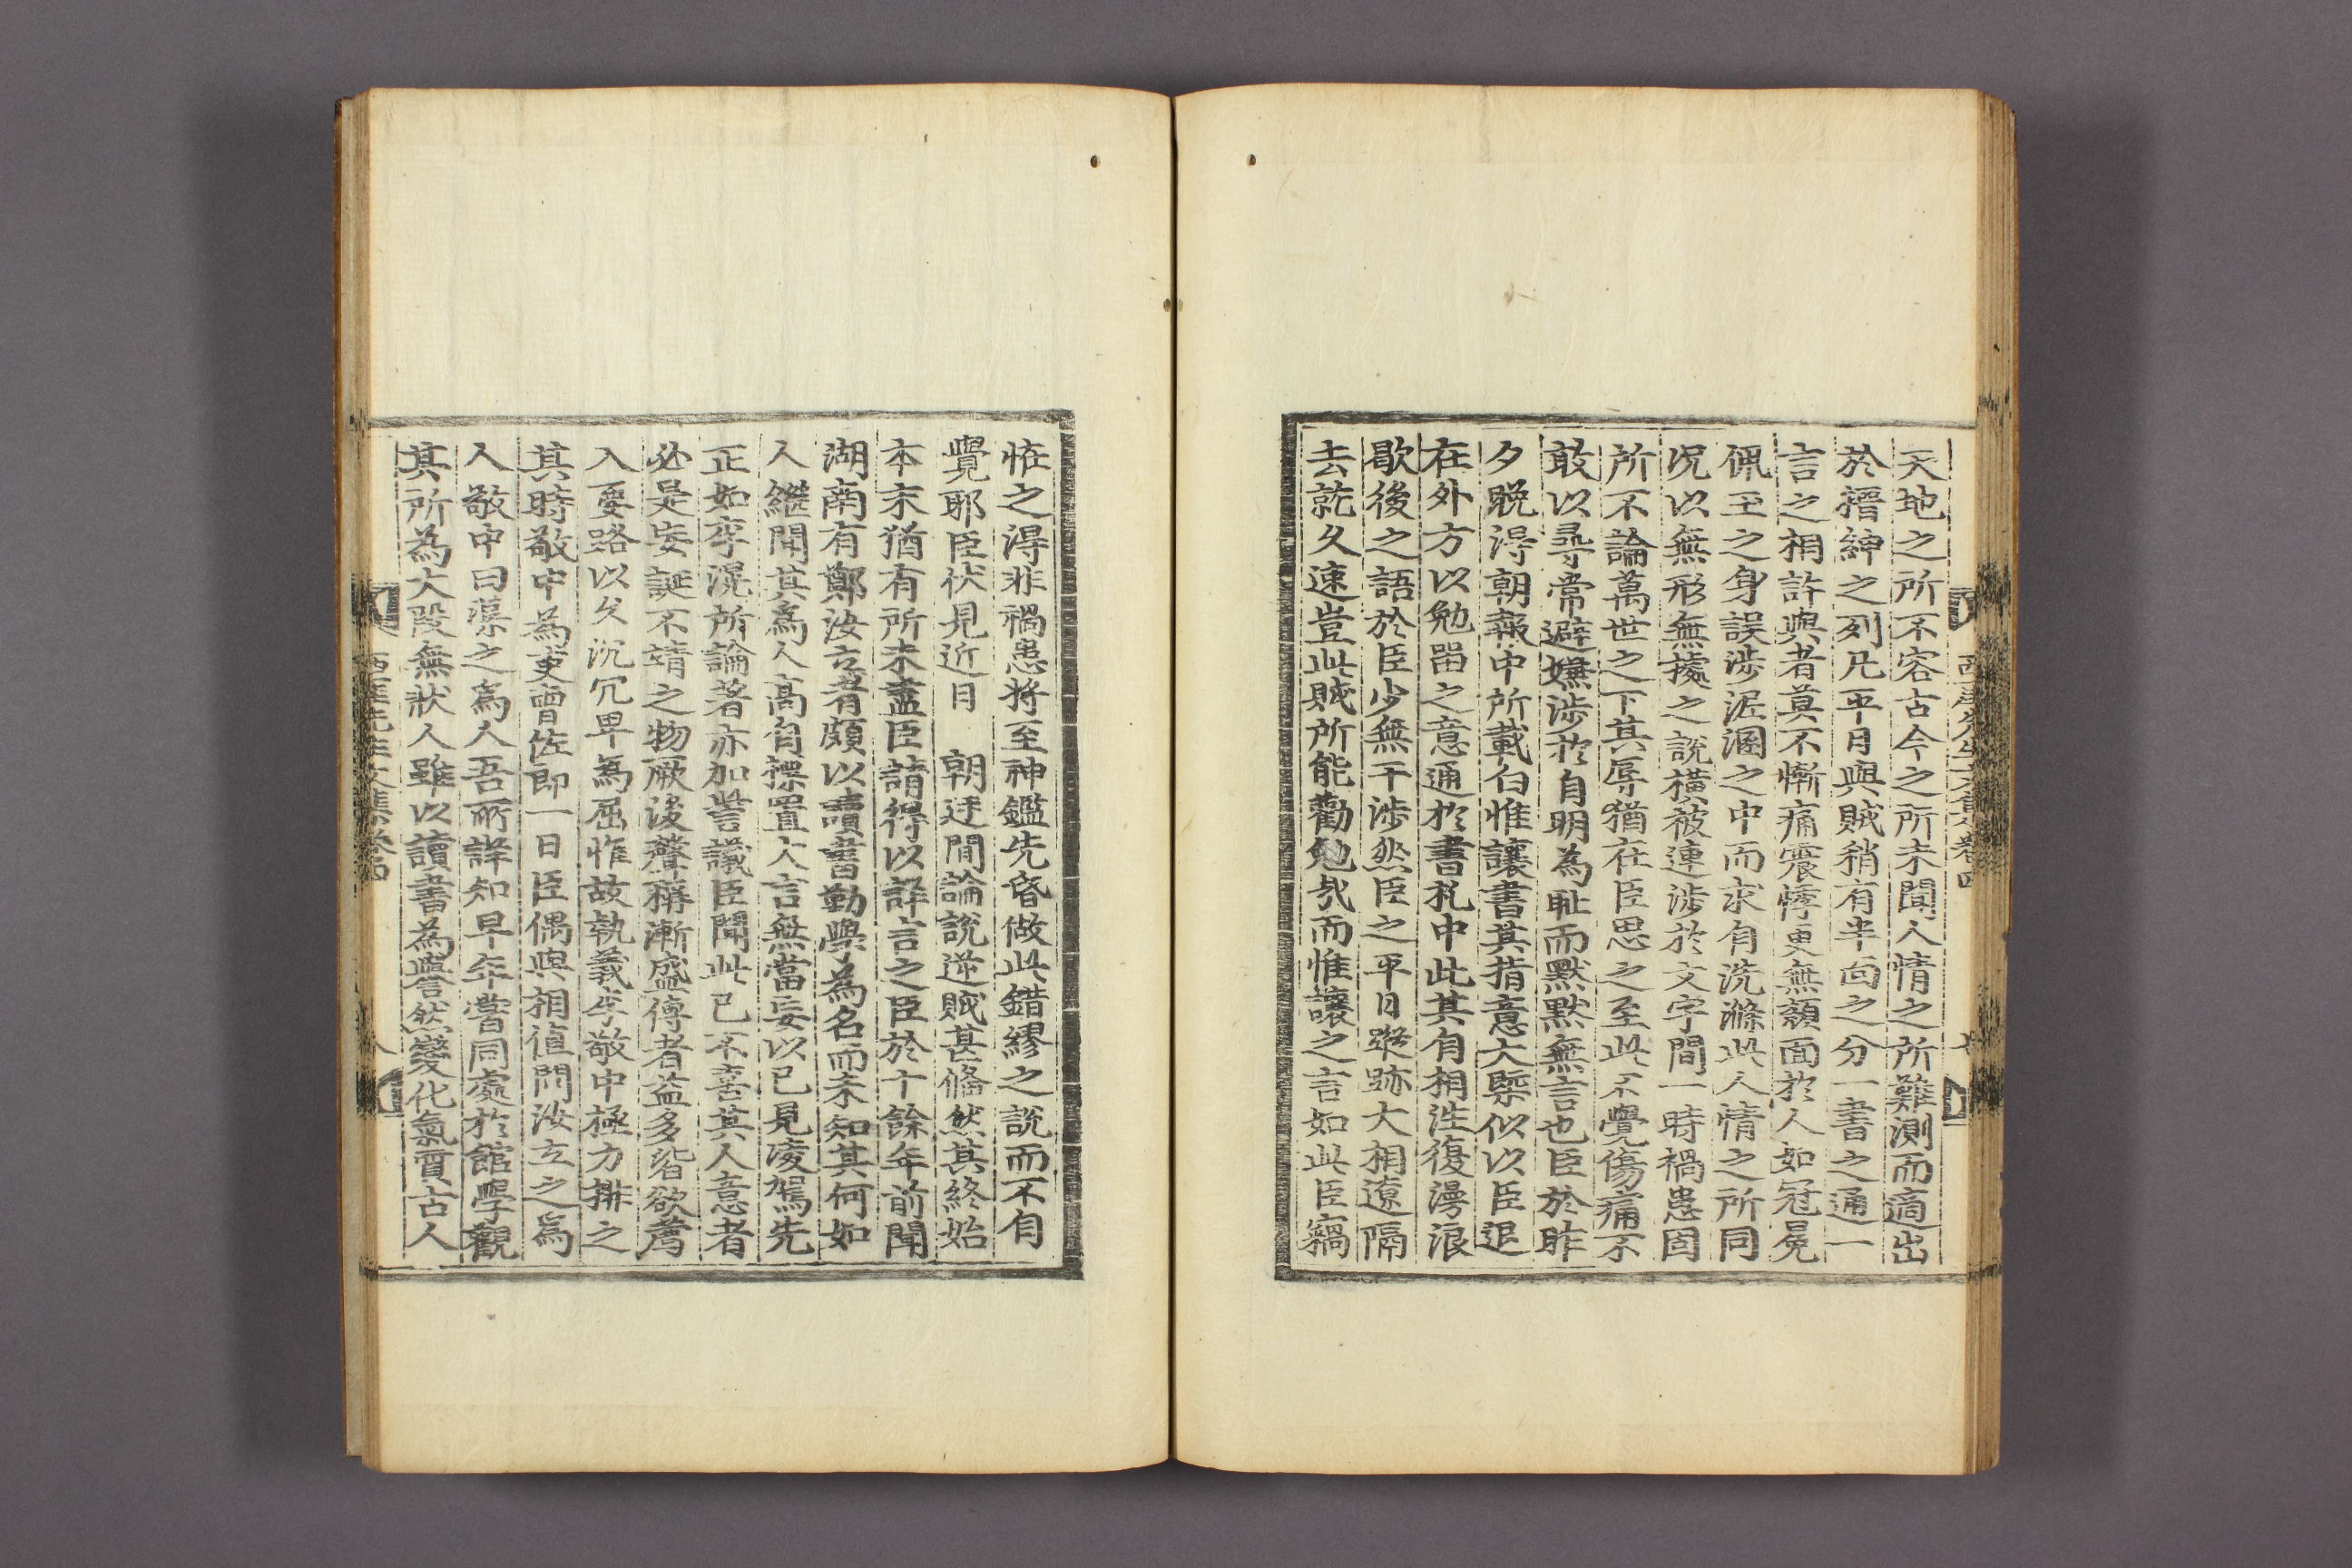 天地之所不容古今之所未聞人情之所難測而適出
於搢紳之列凡平日與賊稍有半面之分一書之通一
言之相許與者莫不慚痛震悸更無顏面於人如冠冕
佩玉之身誤涉泥溷之中而求自洗滌此人情之所同
况以無形無據之說橫被連涉於文字間一時禍患固
所不論萬世之下其辱猶在臣思之至此不覺傷痛不
敢以尋常避嫌涉於自明為恥而默默無言也臣於昨
夕晩得朝報中所載白惟讓書其指意大槩似以臣退
在外方以勉留之意通於書札中此其自相泩復漫浪
歇後之語於臣少無干涉然臣之平日蹤跡大相遼隔
去就久速豈此賊所能勸勉㢤而惟讓之言如此臣竊
西厓先生文集卷四
恠之得非禍患將至神鑑先昏做此錯繆之說而不自
覺耶臣伏見近日 朝廷間論說逆賊甚僃然其終始
本末猶有所未盡臣請得以詳言之臣於十餘年前聞
湖南有鄭汝立者頗以讀書勤學為名而未知其何如
人繼聞其爲人高自摽置大言無當妄以已見凌駕先
正如李滉所論著亦加訾議臣聞此已不喜其人意者
必是妄誕不靖之物厥後聲稱漸盛傳者益多皆欲薦
入要路以久沉冗卑為屈惟故執義李敬中極力排之
其時敬中為吏曹佐郎一日臣偶與相値問汝立之爲
人敬中曰藻之爲人吾所詳知早年嘗同處於館學觀
其所為大段無狀人雖以讀書為譽然變化氣質古人
西厓先生文集卷四